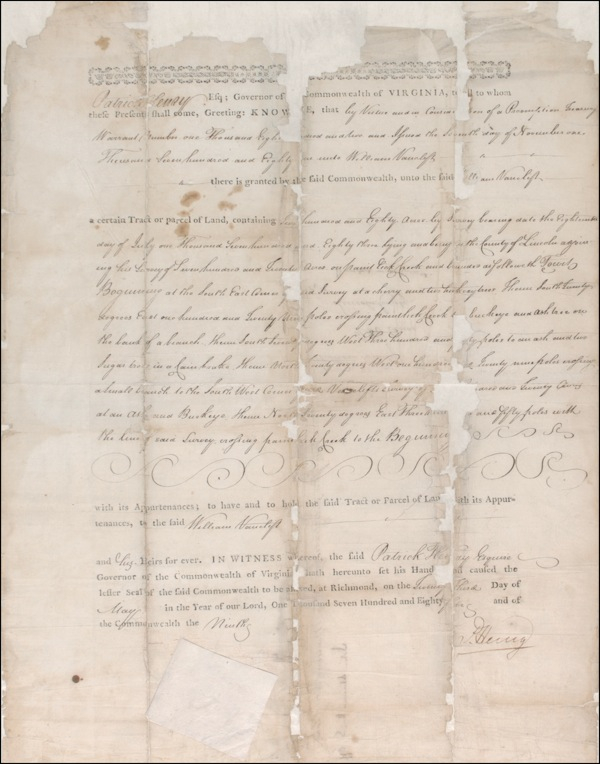 Patrick Henry Esq; Governor of Commonwealth of VIRGINIA, to all to whom
these Presents shall come, Greeting: KNOW E, that by Virtue and in Consid on of a Preemption Treasury
Warrant Number one Thousand Eigh red and two and Issued the Seventh day of November one
Thousand Seven hundred and Eighty unto William Vancleft
there is granted by the said Commonwealth, unto the said William Vancleft
a certain Tract or parcel of Land, containing hundred and Eighty Acres by Survey bearing date the Eighteenth
day of July one Thousand Seven hundred and Eighty three lying and being in the County of Lincoln adjoin
ing his Survey of Seven hundred and Twenty Acres on paint Lick Creek and bounded as followeth Towit
Beginning at the South East Corner Survey at a cherry and two buckeytrees Thence South Twenty
degrees East one hundred and Twenty Nine poles crossing paintlick Creek to buckeye and ash tree on
the bank of a branch Thence South Seventy degrees West Three hundred and fifty poles to an ash and two
Sugar trees in a Canebrake Thence North Twenty degrees West one hundred Twenty nine poles crossing
a small branch to the South West Corner Vanclifts Survey of and Twenty Acres
at an Ash and Buckeye Thence North Seventy degrees East Three and fifty poles with
the line of said Survey crossing paint lick Creek to the Beginning
with its Appurtenances; to have and to hold the said Tract or Parcel of Land with its Appur-
tenances, to the said William Vanclift
and his Heirs for ever. IN WITNESS whereof, the said Patrick Henry Esquire
Governor of the Commonwealth of Virginia hath hereunto set his Hand and caused the
lesser Seal of the said Commonwealth to be affixed, at Richmond, on the Twenty Third Day of
May in the Year of our Lord, One Thousand Seven Hundred and Eighty and of
the Commonwealth the Ninth
P. Henry